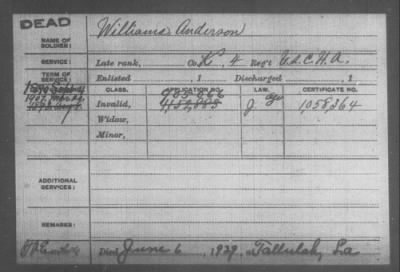 DEAD
NAME OF SOLDIER: Williams Anderson
SERVICE: Late rank, Co. K, 4 Reg't U.S.C.H.A.
TERM OF SERVICE: Enlisted , 1 Discharged , 1
CLASS. APPLICATION NO. LAW. CERTIFICATE NO.
Invalid, 1,058,364
Widow,
Minor,
ADDITIONAL SERVICES:
REMARKS:
Died June 6, 1929, Tallulah, La